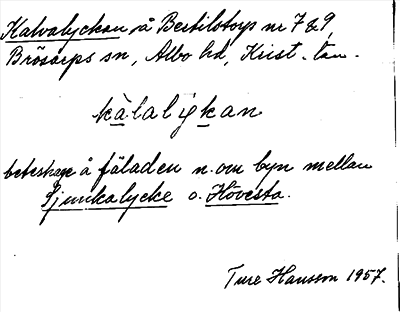 Kalvalyckan på Bertilstorp nr 7&9,
Brösarps sn, Albo hd, Krist. län.
kàlalykan
beteshage å fäladen n. om byn mellan
Sjunkalycke o. Hovesta.
Ture Hansson 1957.